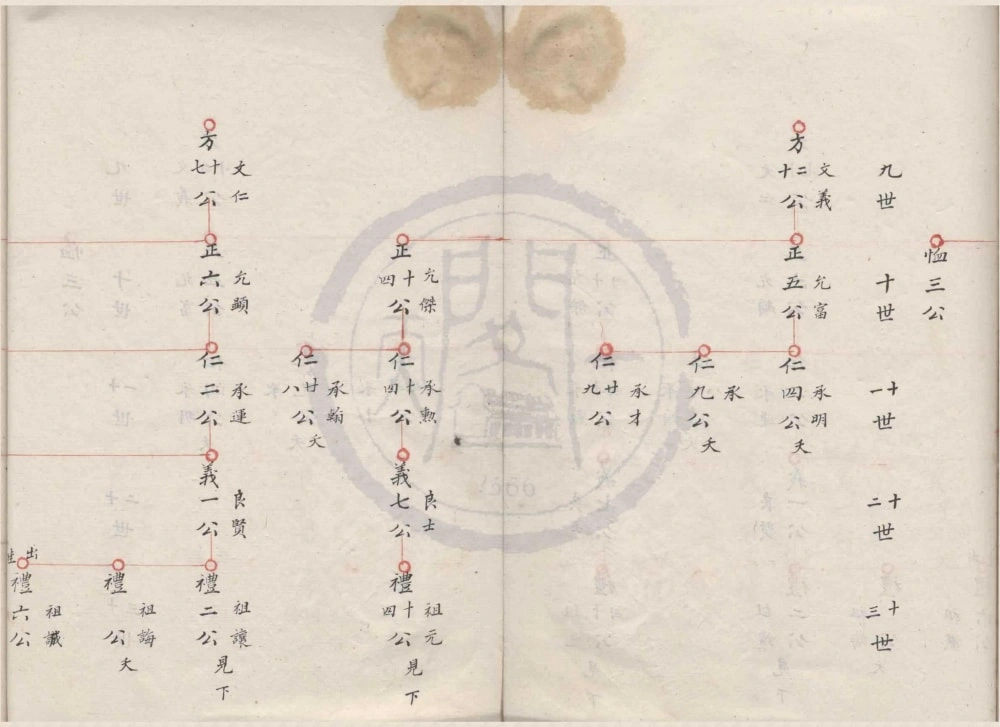 九世
十世
十一世
十二世
十三世
恤三公
方十二公
文義
正五公
允富
仁四公
承明
夭
仁九公
承
夭
仁廿九公
承才
正十四公
允傑
仁十四公
承勲
義七公
良士
禮十四公
祖元
見下
仁廿八公
承翰
夭
方十七公
文仁
正六公
允顕
仁二公
承運
義一公
良賢
禮二公
祖讓
見下
禮公
祖誨
夭
禮六公
祖
出
1660